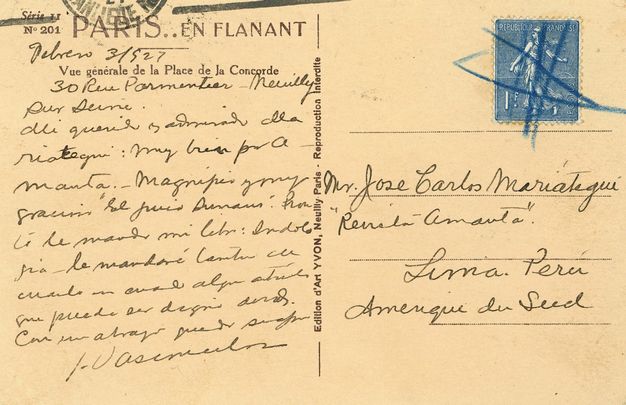 Série II
Nº 201
PARIS.. EN FLANANT
Febrero 3/927
Vue générale de la Place de la Concorde
30 Rue Parmentier - Neuilly
Sur Seine.
Mi querido y admirado Ma
riategui: muy bien por A-
mauta. - Magnífico y muy
gracioso "El Juicio Sumario". Pron
to le mando mi libro:
gía - le mandaré
cuando en cuando algo
que pueda ser digno
Con un abrazo quedo suyo
Edition d'Art YVON, Neuilly Paris - Reproduction Interdite
REPUBLIQUE FRANÇAISE
1F
Mr. José Carlos Mariátegui
"Revista Amauta".
Lima. Perú
Amerique du Sud